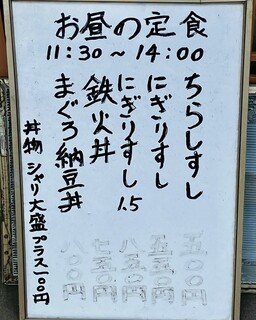 お昼の定食
11:30～14:00
ちらしすし 五〇〇円
にぎりすし 五五〇円
にぎりすし 1.5 八五〇円
鉄火丼 七五〇円
まぐろ納豆丼 八〇〇円
丼物 シャリ大盛プラス一〇〇円